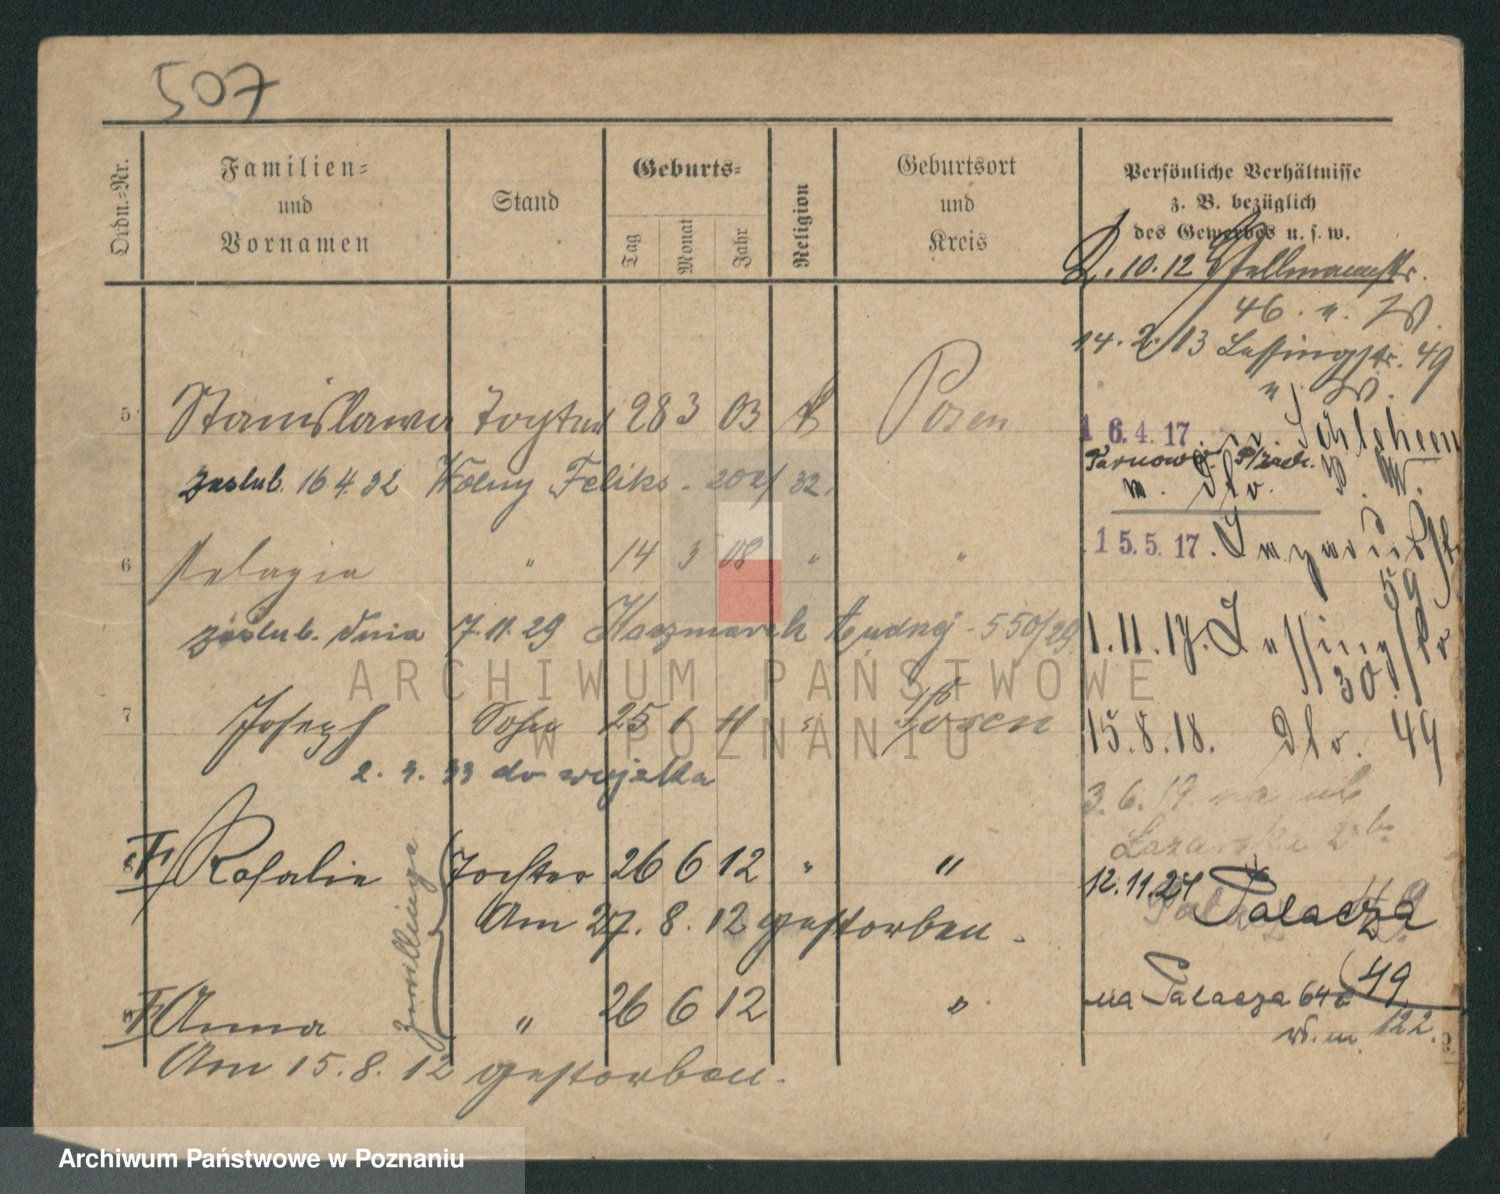 507
Ordn.-Nr.
Familien-
und
Vornamen
Stand
Geburts-
Tag
Monat
Jahr
Religion
Geburtsort
und
Kreis
Persönliche Verhältnisse
z. B. bezüglich
des Gewerbes u. s. w.
2.10.12
46.
14.2.13 Lessingstr. 49
5 Stanislawa Tochter 28 3 03 k Posen
16.4.17
zaslub. 16 4. 32 Wolny Feliks - 202/32.
6 Pelagia " 14 5 08 " "
15.5.17.
59
zaslub. dnia 7.11.29 Kaczmarek Andrzej - 550/29
1.11.17. Lessingstr.
30.
7 Joseph Sohn 25 1 11 " Posen
15.8.18. 49
2. 3. 33 do wojska
3.6.19 na ul
8 Rosalie Tochter 26 6 12 " "
Zwillinge
12.11.24 Palacza
Am 27. 8. 12 gestorben.
49
9 Anna " 26 6 12 "
na Palacza 64a
w.m. 122.
Am 15. 8. 12 gestorben.
ARCHIWUM PAŃSTWOWE
W POZNANIU
Archiwum Państwowe w Poznaniu